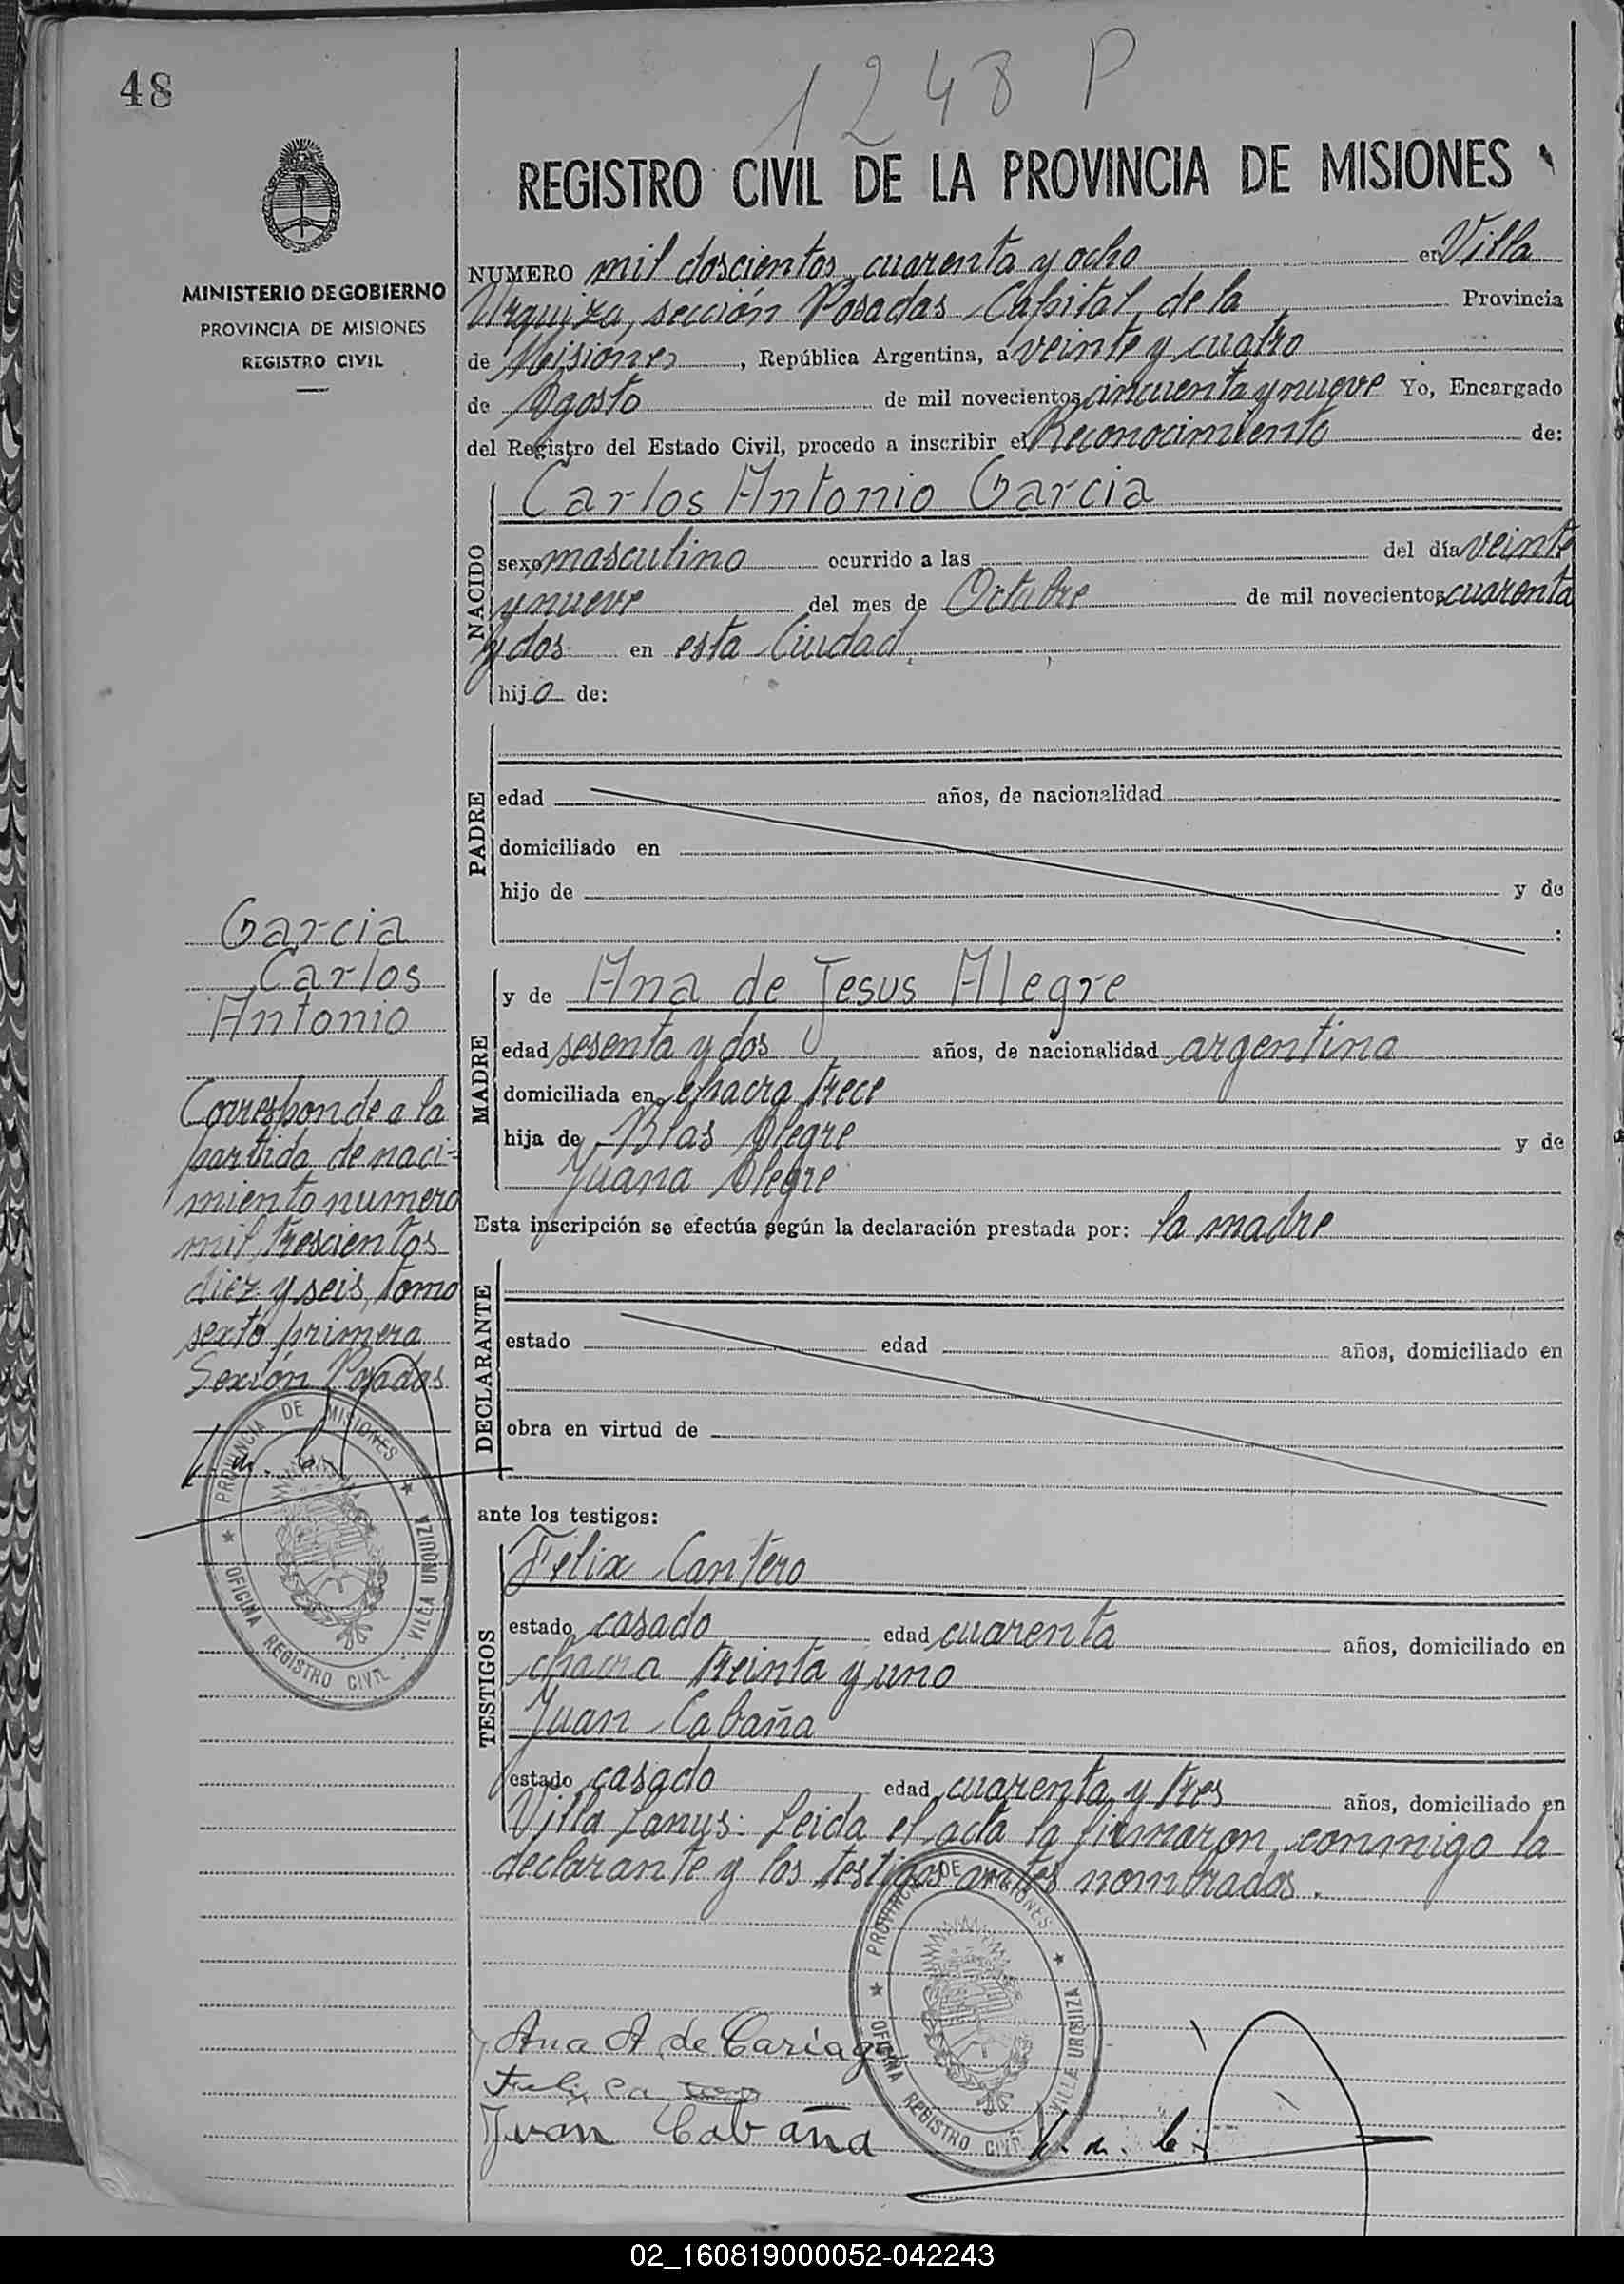 48
1248 P
REGISTRO CIVIL DE LA PROVINCIA DE MISIONES
MINISTERIO DE GOBIERNO
PROVINCIA DE MISIONES
REGISTRO CIVIL
NUMERO mil doscientos cuarenta y ocho en Villa
Urquiza, sección Posadas Capital de la Provincia
de Misiones, República Argentina, a veinte y cuatro
de Agosto de mil novecientos cincuenta y nueve Yo, Encargado
del Registro del Estado Civil, procedo a inscribir el Reconocimiento de:
NACIDO
Carlos Antonio Garcia
sexo masculino ocurrido a las del día veinte
y nueve del mes de Octubre de mil novecientos cuarenta
y dos en esta Ciudad
hijo de:
PADRE
edad años, de nacionalidad
domiciliado en
hijo de y de
:
MADRE
y de Ana de Jesus Alegre
edad sesenta y dos años, de nacionalidad argentina
domiciliada en chacra trece
hija de Blas Alegre y de
Juana Alegre
Esta inscripción se efectúa según la declaración prestada por: la madre
DECLARANTE
estado edad años, domiciliado en
obra en virtud de
ante los testigos:
TESTIGOS
Felix Cantero
estado casado edad cuarenta años, domiciliado en
chacra treinta y uno
Juan Cabaña
estado casado edad cuarenta y tres años, domiciliado en
Villa Lanus: Leida el acta la firmaron conmigo la
declarante y los testigos antes nombrados.
Garcia
Carlos
Antonio
Corresponde a la
partida de naci=
miento numero
mil trescientos
diez y seis, tomo
sexto primera
Sexión Posadas
PROVINCIA DE MISIONES
OFICINA REGISTRO CIVIL VILLA URQUIZA
PROVINCIA DE MISIONES
OFICINA REGISTRO CIVIL VILLA URQUIZA
Ana A de Cariaga
Felix
Juan Cabaña
02_160819000052-042243